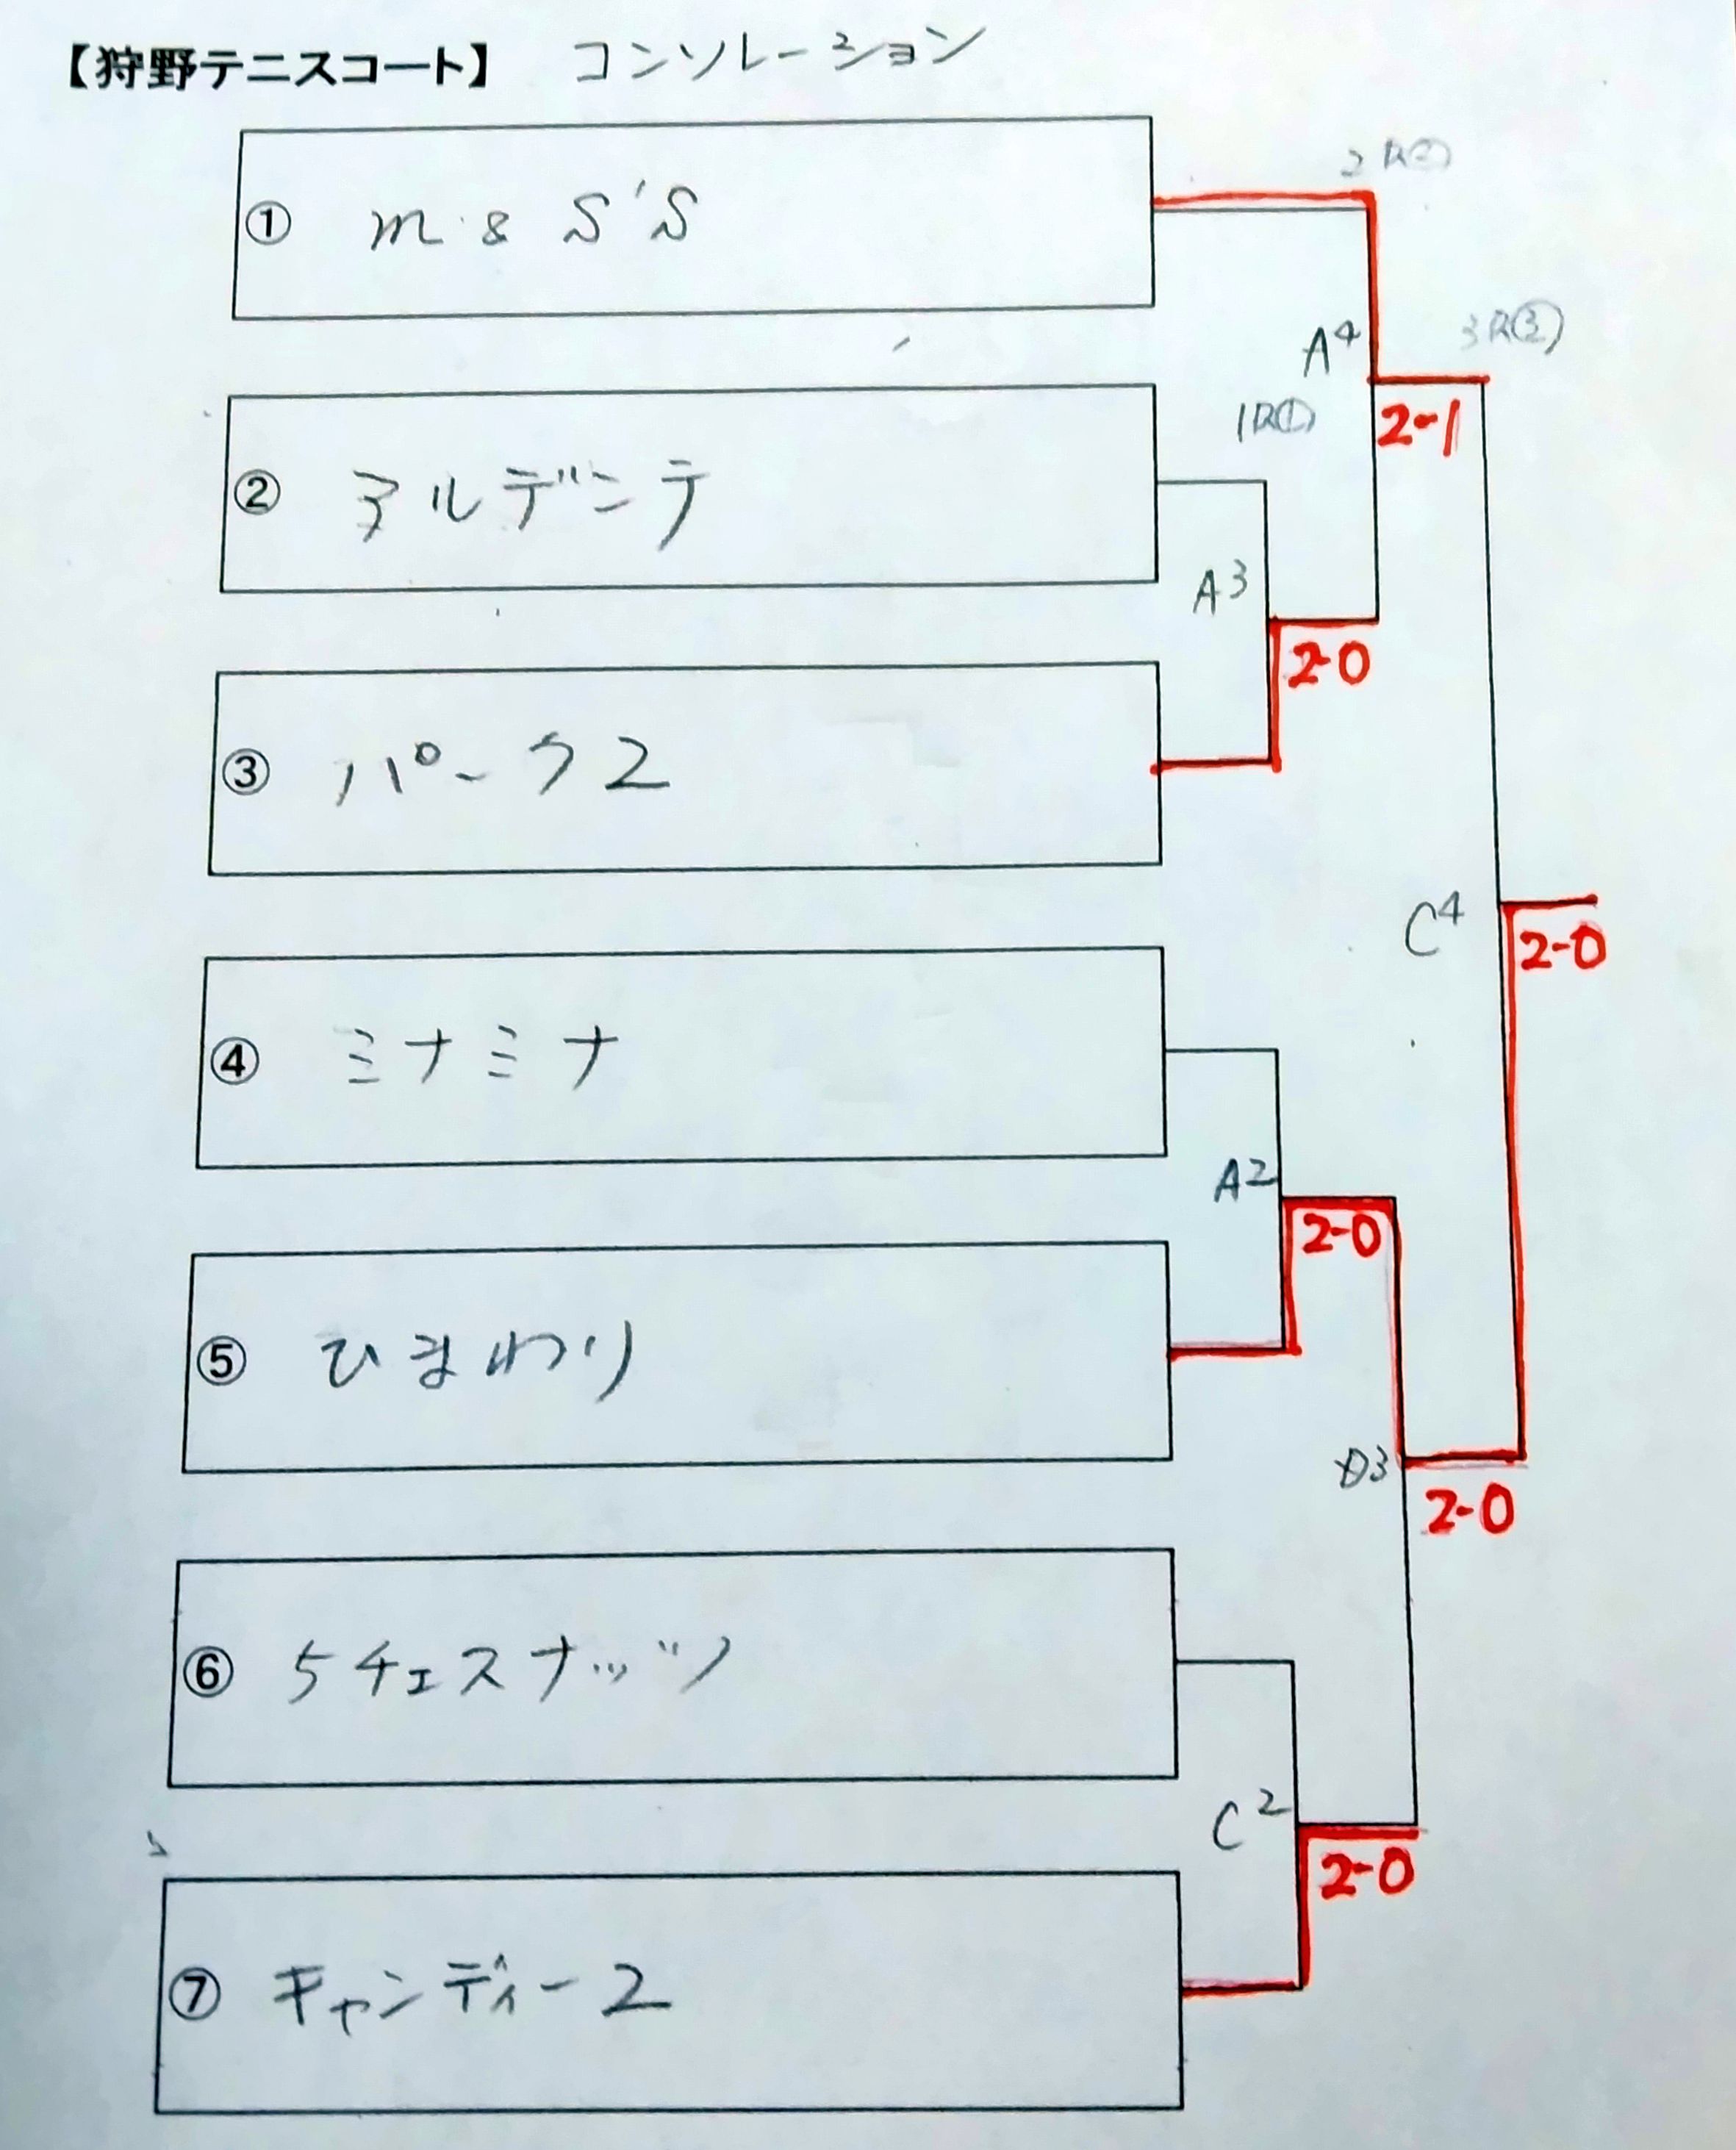 【狩野テニスコート】 コンソレーション
① m & S'S
A4
3R③
1R①
2-1
② アルデンテ
A3
2-0
③ パーク2
C4
2-0
④ ミナミナ
A2
2-0
⑤ ひまわり
D3
2-0
⑥ 5チェスナッツ
C2
2-0
⑦ キャンディー2